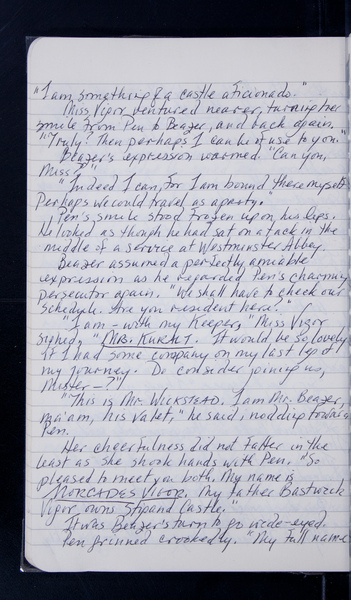 "I am something of a castle aficionado."
Miss Vigor ventured nearer, turning her
smile from Pen to Beazer, and back again.
"Truly? Then perhaps I can be of use to you."
Beazer's expression warmed. "Can you,
Miss?"
"Indeed I can, for I am bound there myself.
Perhaps we could travel as a party."
Pen's smile stood frozen upon his lips.
He looked as though he had sat on a tack in the
middle of a service at Westminster Abbey.
Beazer assumed a perfectly amiable
expression as he regarded Pen's charming
persecutor again. "We shall have to check our
schedule. Are you resident here?"
"I am – with my keeper," Miss Vigor
sighed, "MRS. It would be so lovely
if I had some company on my last leg of
my journey. Do consider joining us,
Mister–?"
"This is Mr. WICKSTEAD. I am Mr. Beazer,
ma'am, his valet," he said, nodding towards
Pen.
Her cheerfulness did not falter in the
least as she shook hands with Pen. "So
pleased to meet you both. My name is
MORGADES VIGOR. My father Bastwick
Vigor owns Castle."
It was Beazer's turn to go wide-eyed.
Pen grinned crookedly. "My full name